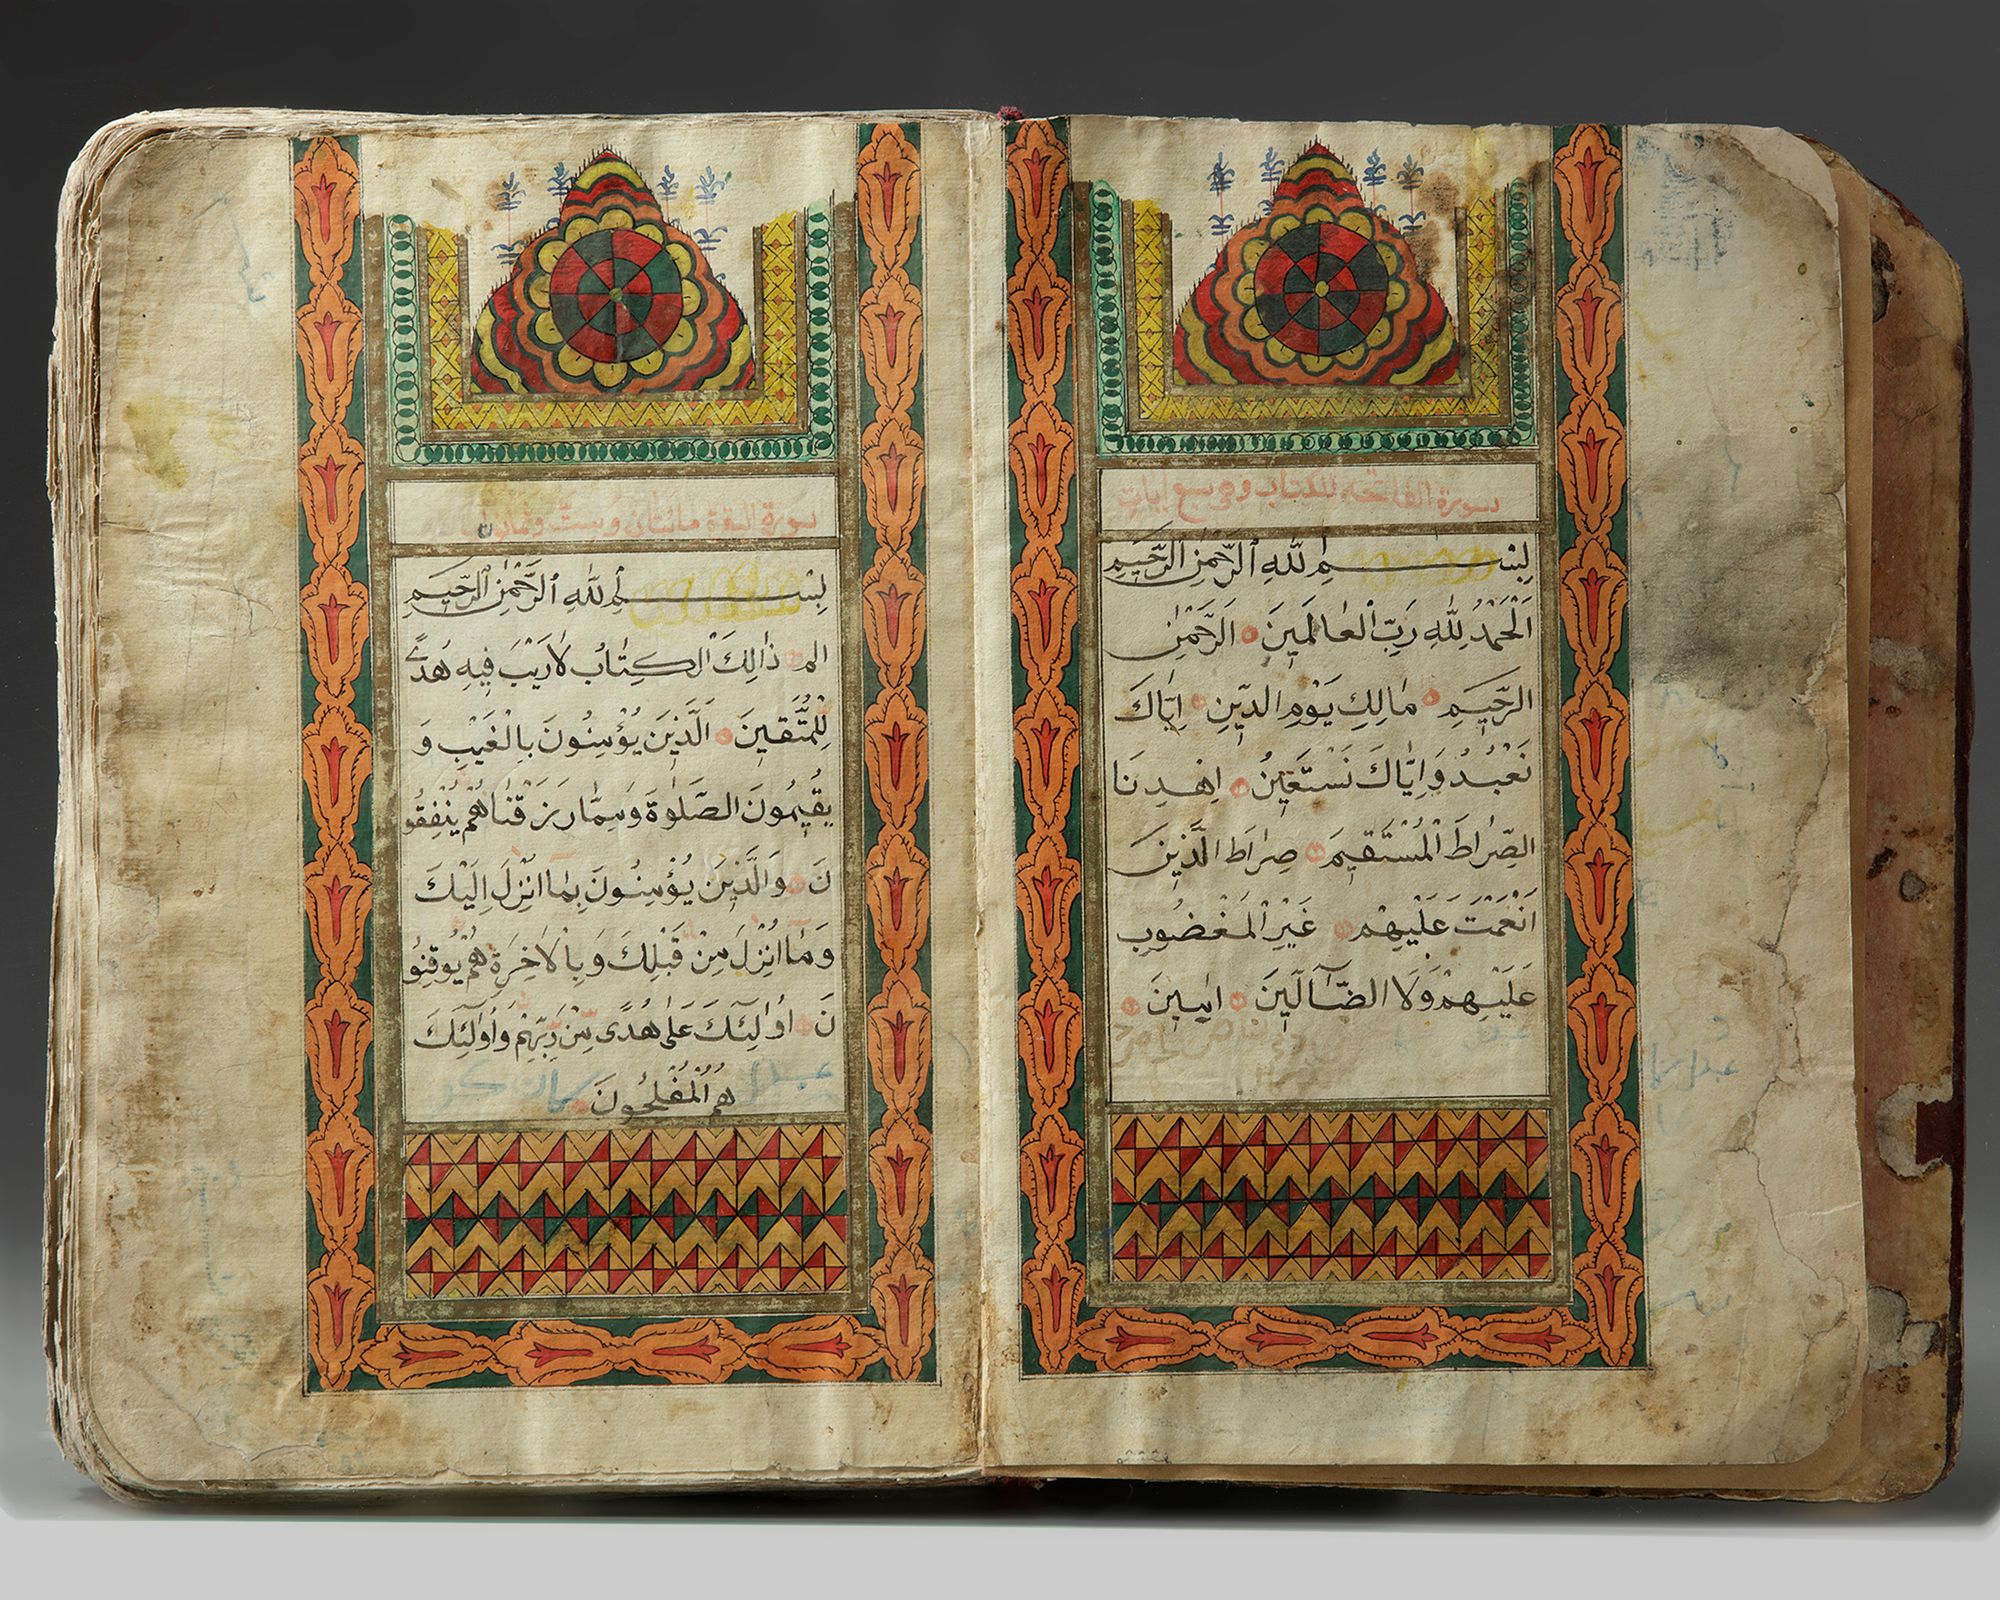 سورة الفاتحة للكتاب وهي سبع ايات
بِسْمِ اللهِ الرَّحْمٰنِ الرَّحِيمِ
اَلْحَمْدُ لِلّٰهِ رَبِّ الْعَالَمِينَ اَلرَّحْمٰنِ
الرَّحِيمِ مَالِكِ يَوْمِ الدِّينِ اِيَّاكَ
نَعْبُدُ وَاِيَّاكَ نَسْتَعِينُ اِهْدِنَا
الصِّرَاطَ الْمُسْتَقِيمَ صِرَاطَ الَّذِينَ
اَنْعَمْتَ عَلَيْهِمْ غَيْرِ الْمَغْضُوبِ
عَلَيْهِمْ وَلَا الضَّآلِّينَ اٰمِينَ
سورة البقرة مائتان وستّ وثمانون
بِسْمِ اللهِ الرَّحْمٰنِ الرَّحِيمِ
الم ذَالِكَ الْكِتَابُ لَا رَيْبَ فِيهِ هُدًى
لِلْمُتَّقِينَ اَلَّذِينَ يُؤْمِنُونَ بِالْغَيْبِ وَ
يُقِيمُونَ الصَّلٰوةَ وَمِمَّا رَزَقْنَاهُمْ يُنْفِقُو
نَ وَالَّذِينَ يُؤْمِنُونَ بِمَا اُنْزِلَ اِلَيْكَ
وَمَا اُنْزِلَ مِنْ قَبْلِكَ وَبِالْاٰخِرَةِ هُمْ يُوقِنُو
نَ اُولٰئِكَ عَلٰى هُدًى مِّنْ رَبِّهِمْ وَاُولٰئِكَ
هُمُ الْمُفْلِحُونَ